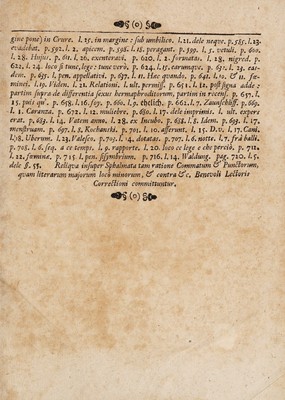 (o)
gine pone) in Crure. l. 25. in margine : sub umbilico. l. 21. dele neqve. p. 585. l. 23.
evadebat. p. 592. l. 2. apicem. p. 598. l. 18. peragant. p. 599. l. 5. vetuli. p. 600.
l. 28. Hujus. p. 61. l. 26. exenteravi. p. 620. l. 2. formatas. l. 28. nigred. p.
621. l. 24. loco si tunc, lege : tunc verò. p. 624. l. 15. earumqve. p. 631. l. 23. ear-
dem. p. 635. l. pen. appellativi. p. 637. l. 11. Hæc quando. p. 642. l. 10. & 11. fœ-
minei. l. 19. Viden. l. 21. Relationi. l. ult. permiss. p. 651. l. 12. post signa adde :
partim supra de differentia sexus hermaphroditorum, partim in recens. p. 657. l.
15. puis qu'. p. 658. l. 16. soy. p. 660. l. 9. ehelich. p. 661. l. 7. Zaunschliff. p. 669.
l. 1. Caranza. p. 672. l. 12. muliebre. p. 680. l. 17. dele imprimis. l. ult. expere
erat. p. 683. l. 14. Fatem anno. l. 28. ex Incubo. p. 688. l. 8. Idem. p. 693. l. 17.
menstruam. p. 697. l. 8. Kochanski. p. 701. l. 10. asserunt. l. 15. D. v. l. 17. Cani.
l. 18. liberum. l. 23. Valesco. p. 703. l. 4. dotatas. p. 707. l. 6. notter. l. 7. frà balli.
p. 708. l. 6. seq. à ce temps. l. 9. rapporte. l. 20. loco ce lege e che perciò. p. 712.
l. 22. fœmina. p. 715. l. pen. sisymbrium. p. 716. l. 14. Walding. pag. 720. l. 5.
dele si. Reliqva insuper Sphalmata tam ratione Commatum & Punctorum,
quam literarum majorum locò minorum, & contra &c. Benevoli Lectoris
Correctioni committuntur.
(o)